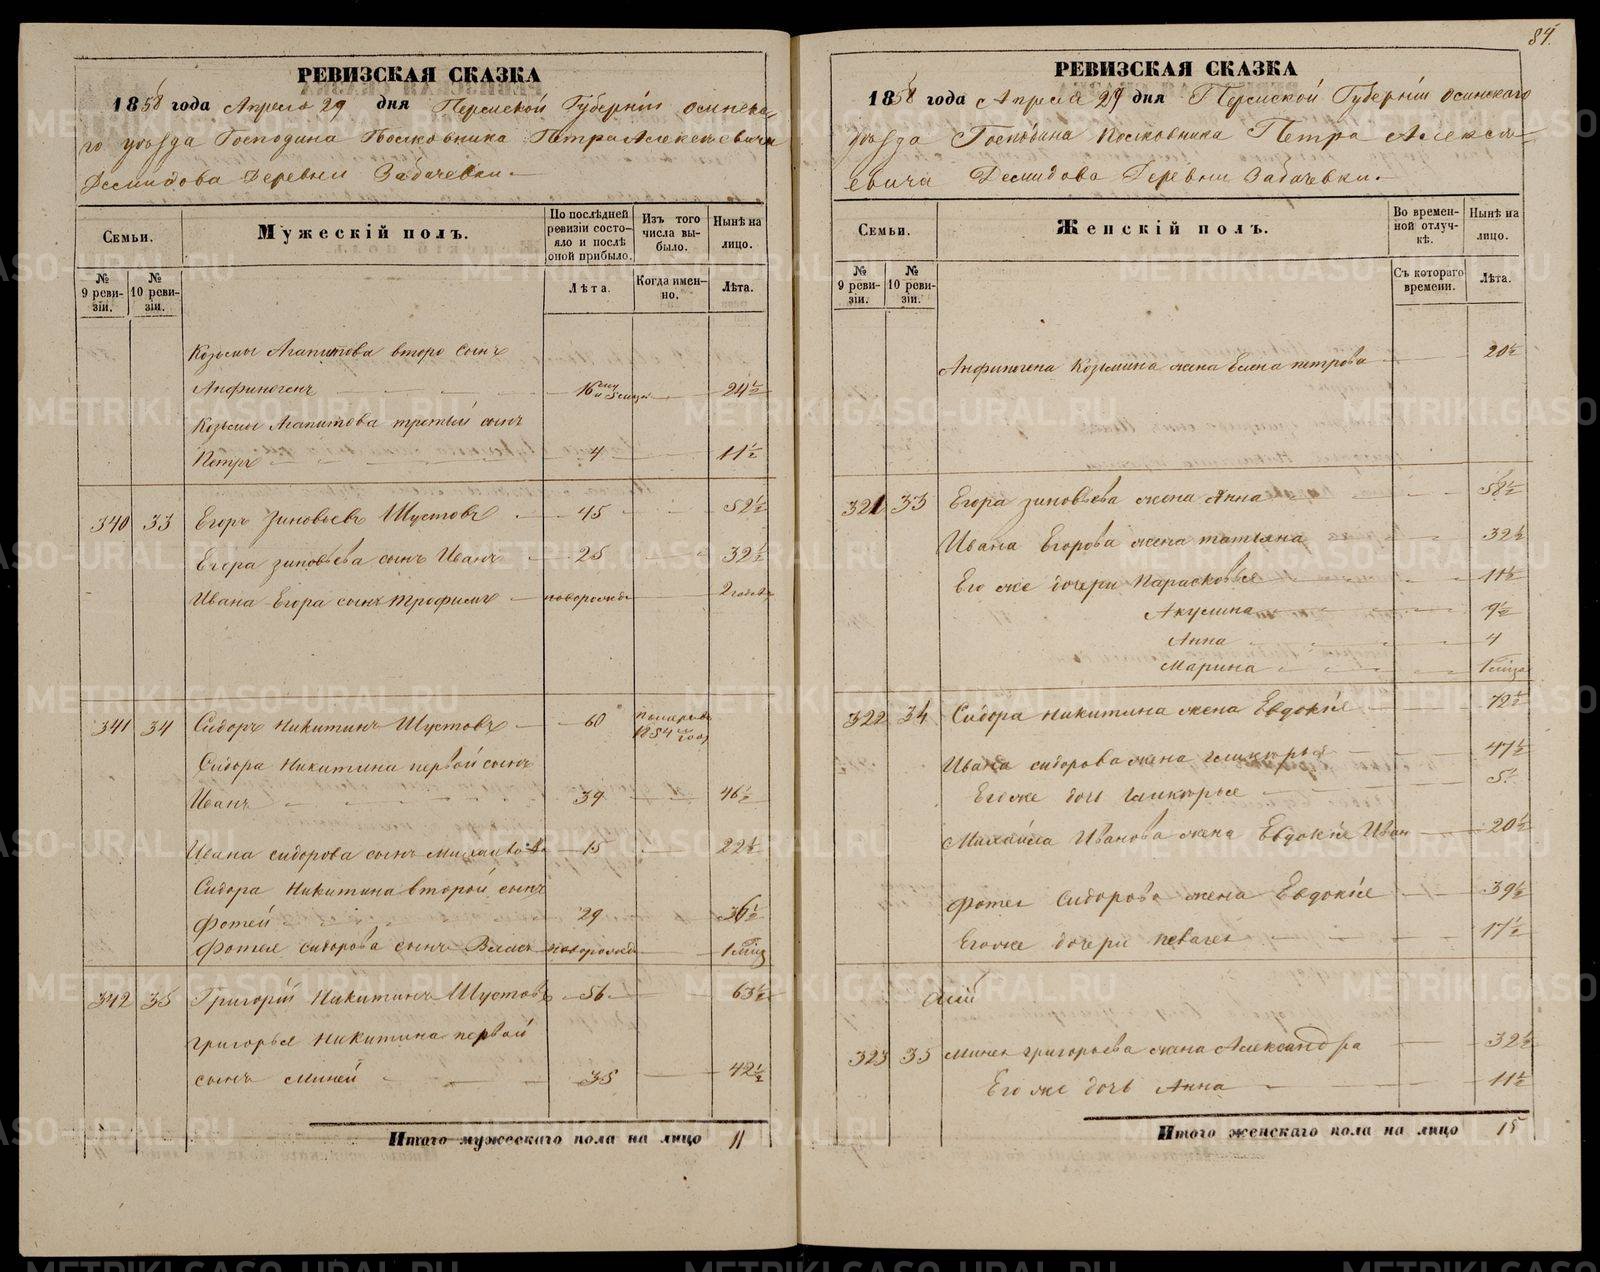 84.
РЕВИЗСКАЯ СКАЗКА
1858 года Апреля 29 дня Пермской Губерніи осинска-
го уѣзда Господина Полковника Петра Алексѣевича
Демидова Деревни Забачевки.
Семьи.
Мужескій полъ.
По послѣдней ревизіи состо-яло и послѣ оной прибыло.
Изъ того числа вы-было.
Нынѣ на лицо.
№ 9 реви-зіи.
№ 10 реви-зіи.
Лѣта.
Когда имен-но.
Лѣта.
Козьмы Агапитова второ сынъ
Анфиногенъ 24½
Козьмы Агапитова третьій сынъ
Петръ 4 11½
340 33 Егоръ Зиновьевъ Шустовъ 45 52½
Егора зиновьева сынъ Иванъ 25 32½
Ивана Егора сынъ трофимъ новорожде 2
341 34 Сидоръ Никитинъ Шустовъ 60 померъ 1854
Сидора Никитина первой сынъ
Иванъ 39 46½
Ивана сидорова сынъ 15 22½
Сидора Никитина второй сынъ
Фотей 29 36½
Фотея сидорова сынъ Власъ новорожде
342 35 Григорій Никитинъ Шустовъ 56 63½
григорья Никитина первой
сынъ Миней 35 42½
Итого мужескаго пола на лицо 11
РЕВИЗСКАЯ СКАЗКА
1858 года Апреля 29 дня Пермской Губерніи осинскаго
уѣзда Господина Полковника Петра Алексѣ-
евича Демидова Деревни Забачевки.
Семьи.
Женскій полъ.
Во времен-ной отлуч-кѣ.
Нынѣ на лицо.
№ 9 реви-зіи.
№ 10 реви-зіи.
Съ котораго времени.
Лѣта.
Анфиногена Козьмина жена Елена петрова 20½
321 33 Егора зиновьева жена Анна 58½
Ивана Егорова жена татьяна 32½
Его же дочери Парасковья 11½
Акулина 9½
Анна 4
Марина
322 34 Сидора никитина жена Евдокія 72½
Ивана сидорова жена гликерья 47½
Егоже дочь гликерья
Михайла Иванова жена Евдокія Иван 20½
Фотея Сидорова жена Евдокія 39½
Егоже дочери пелагея 17½
323 35 Минея григорьева жена Александра 32½
Его же дочь Анна 11½
Итого женскаго пола на лицо 15
METRIKI.GASO-URAL.RU